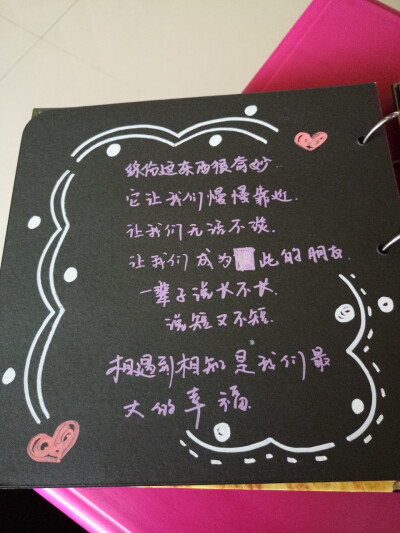 缘份这东西很奇妙.
它让我们慢慢靠近.
让我们无话不谈.
让我们成为此的朋友.
一辈子说长不长
说短又不短.
相遇到相知是我们最
大的幸福.